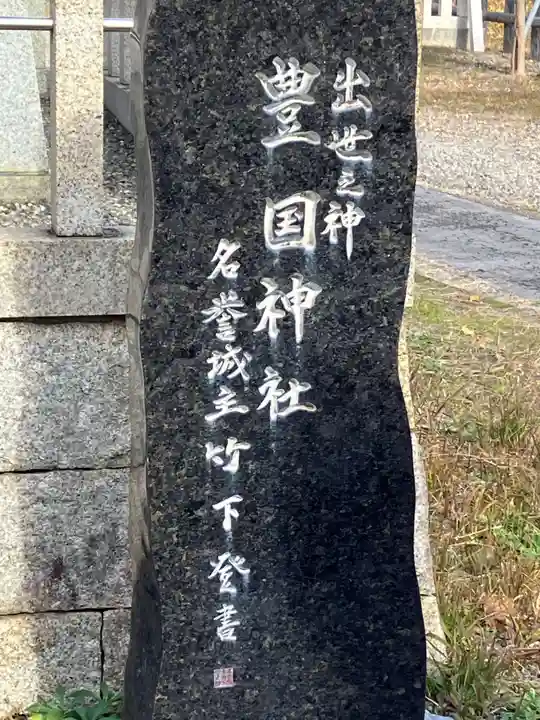 出世之神
豊国神社
名誉城主竹下登書